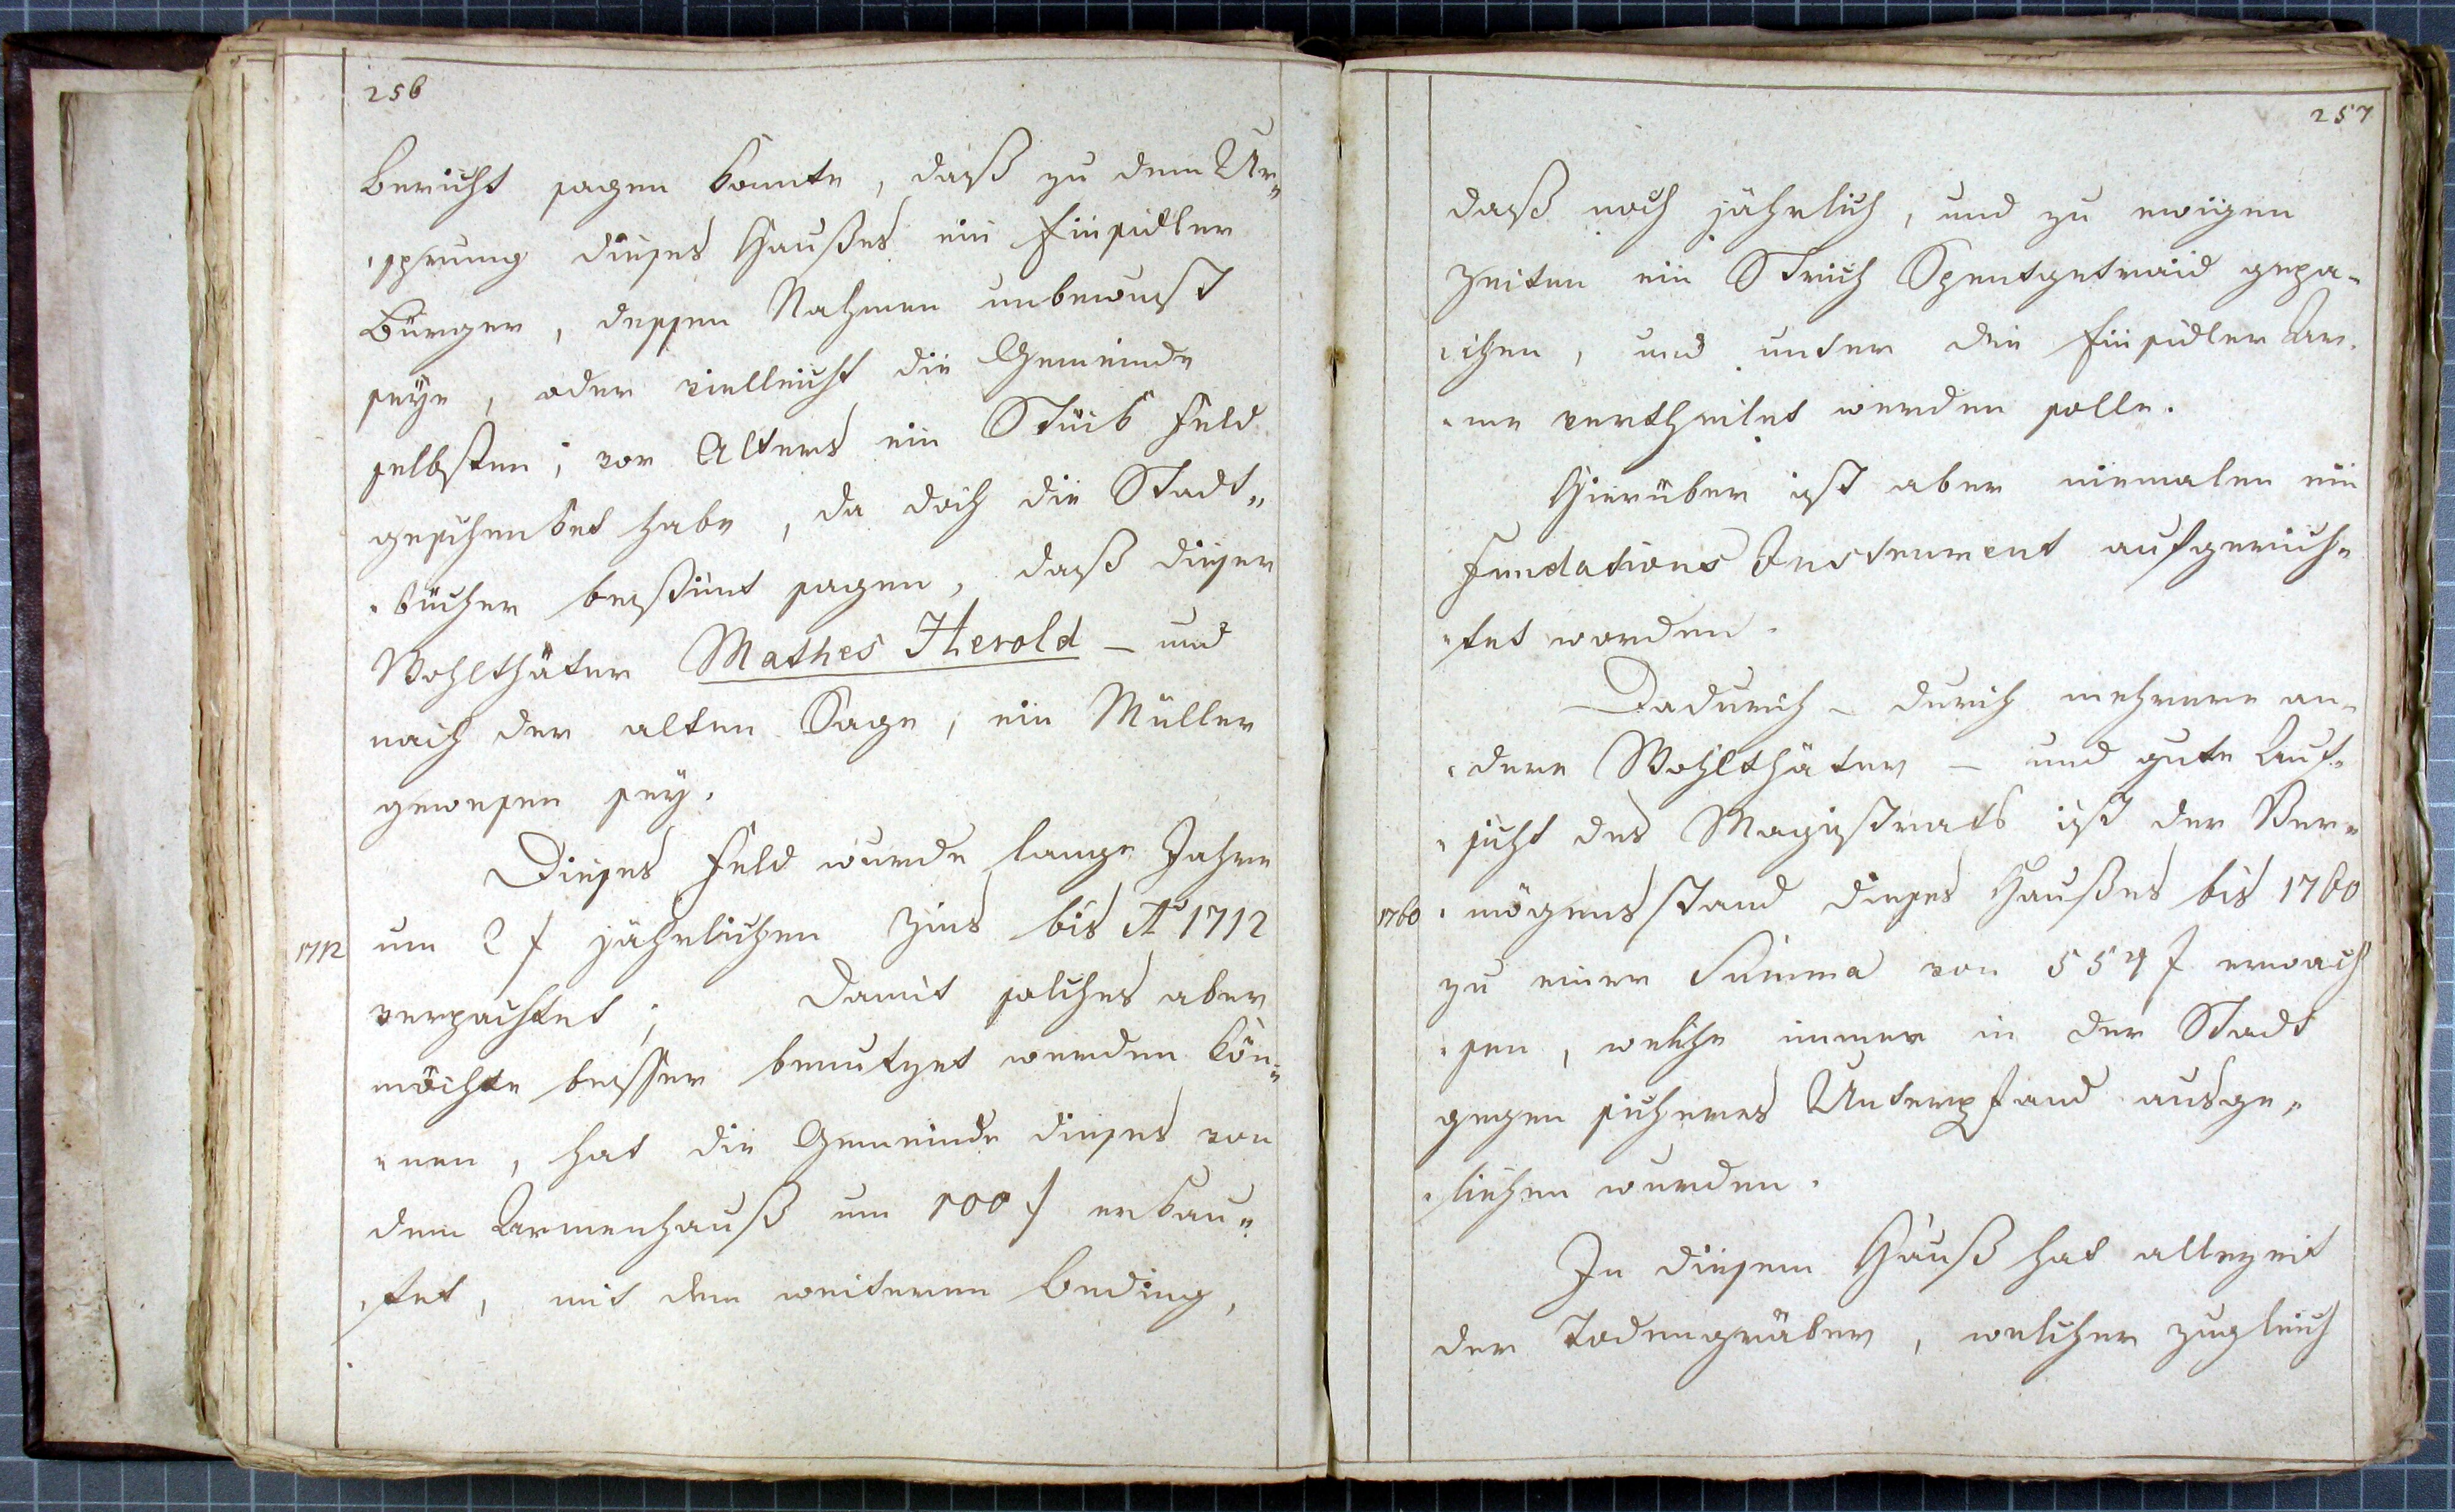 256
Bericht sagen konnte, daß zu dem Ur„
„sprung dieses Haußes ein Einsidler
Bürger, dessen Nahmen unbewust
seÿe, oder vielleicht die Gemeinde
selbsten; vor Alters ein Stück Feld
geschenket habe, da doch die Stadt„
„bücher bestimt sagen, daß dieser
Wohlthäter Mathes Herold – und
nach der alten Sage, ein Müller
gewesen seÿ.
Dieses Feld wurde lange Jahre
1712
um 2 f jährlichen Zins bis Aō 1712
verpachtet; Damit solches aber
möchte besser benutzet werden kön„
„nen, hat die Gemeinde dieses von
dem Armenhauß um 100 f erkau„
„fet, mit dem weiteren Beding,
257
daß noch jährlich, und zu ewigen
Zeiten ein Strich Spentgetraid
und unter die Einsidler Ar„
„me vertheilet werden solle.
Hierüber ist aber niemalen ein
Fundations Instrument aufgerich„
„tet worden.
Dadurch – durch mehrere an„
„dere Wohlthäter – und gute Auf„
„sicht des Magistrats ist der Ver„
1760
„mögensstand dieses Haußes bis 1760
zu einer Summa von 554 f erwach
„sen, welche immer in der Stadt
gegen sicheres Unterpfand ausge„
„liehen wurden.
In diesem Hauß hat allezeit
der Todengräber, welcher zugleich